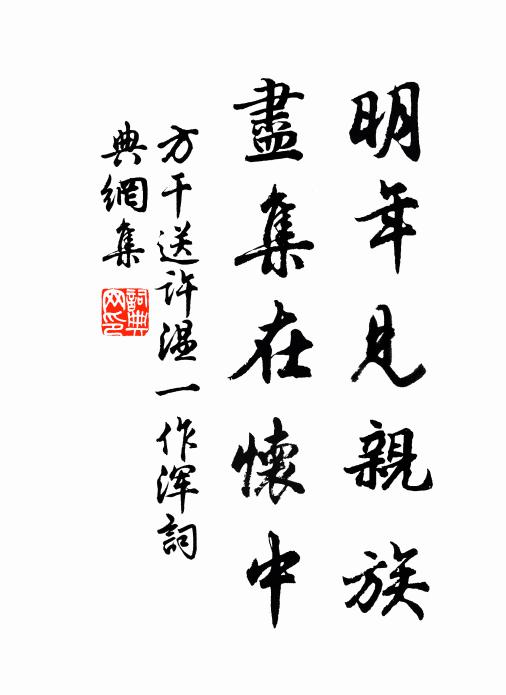 明年見親族
盡集在懷中
方干送許溫一作渾詞
典網集
詞典
网印